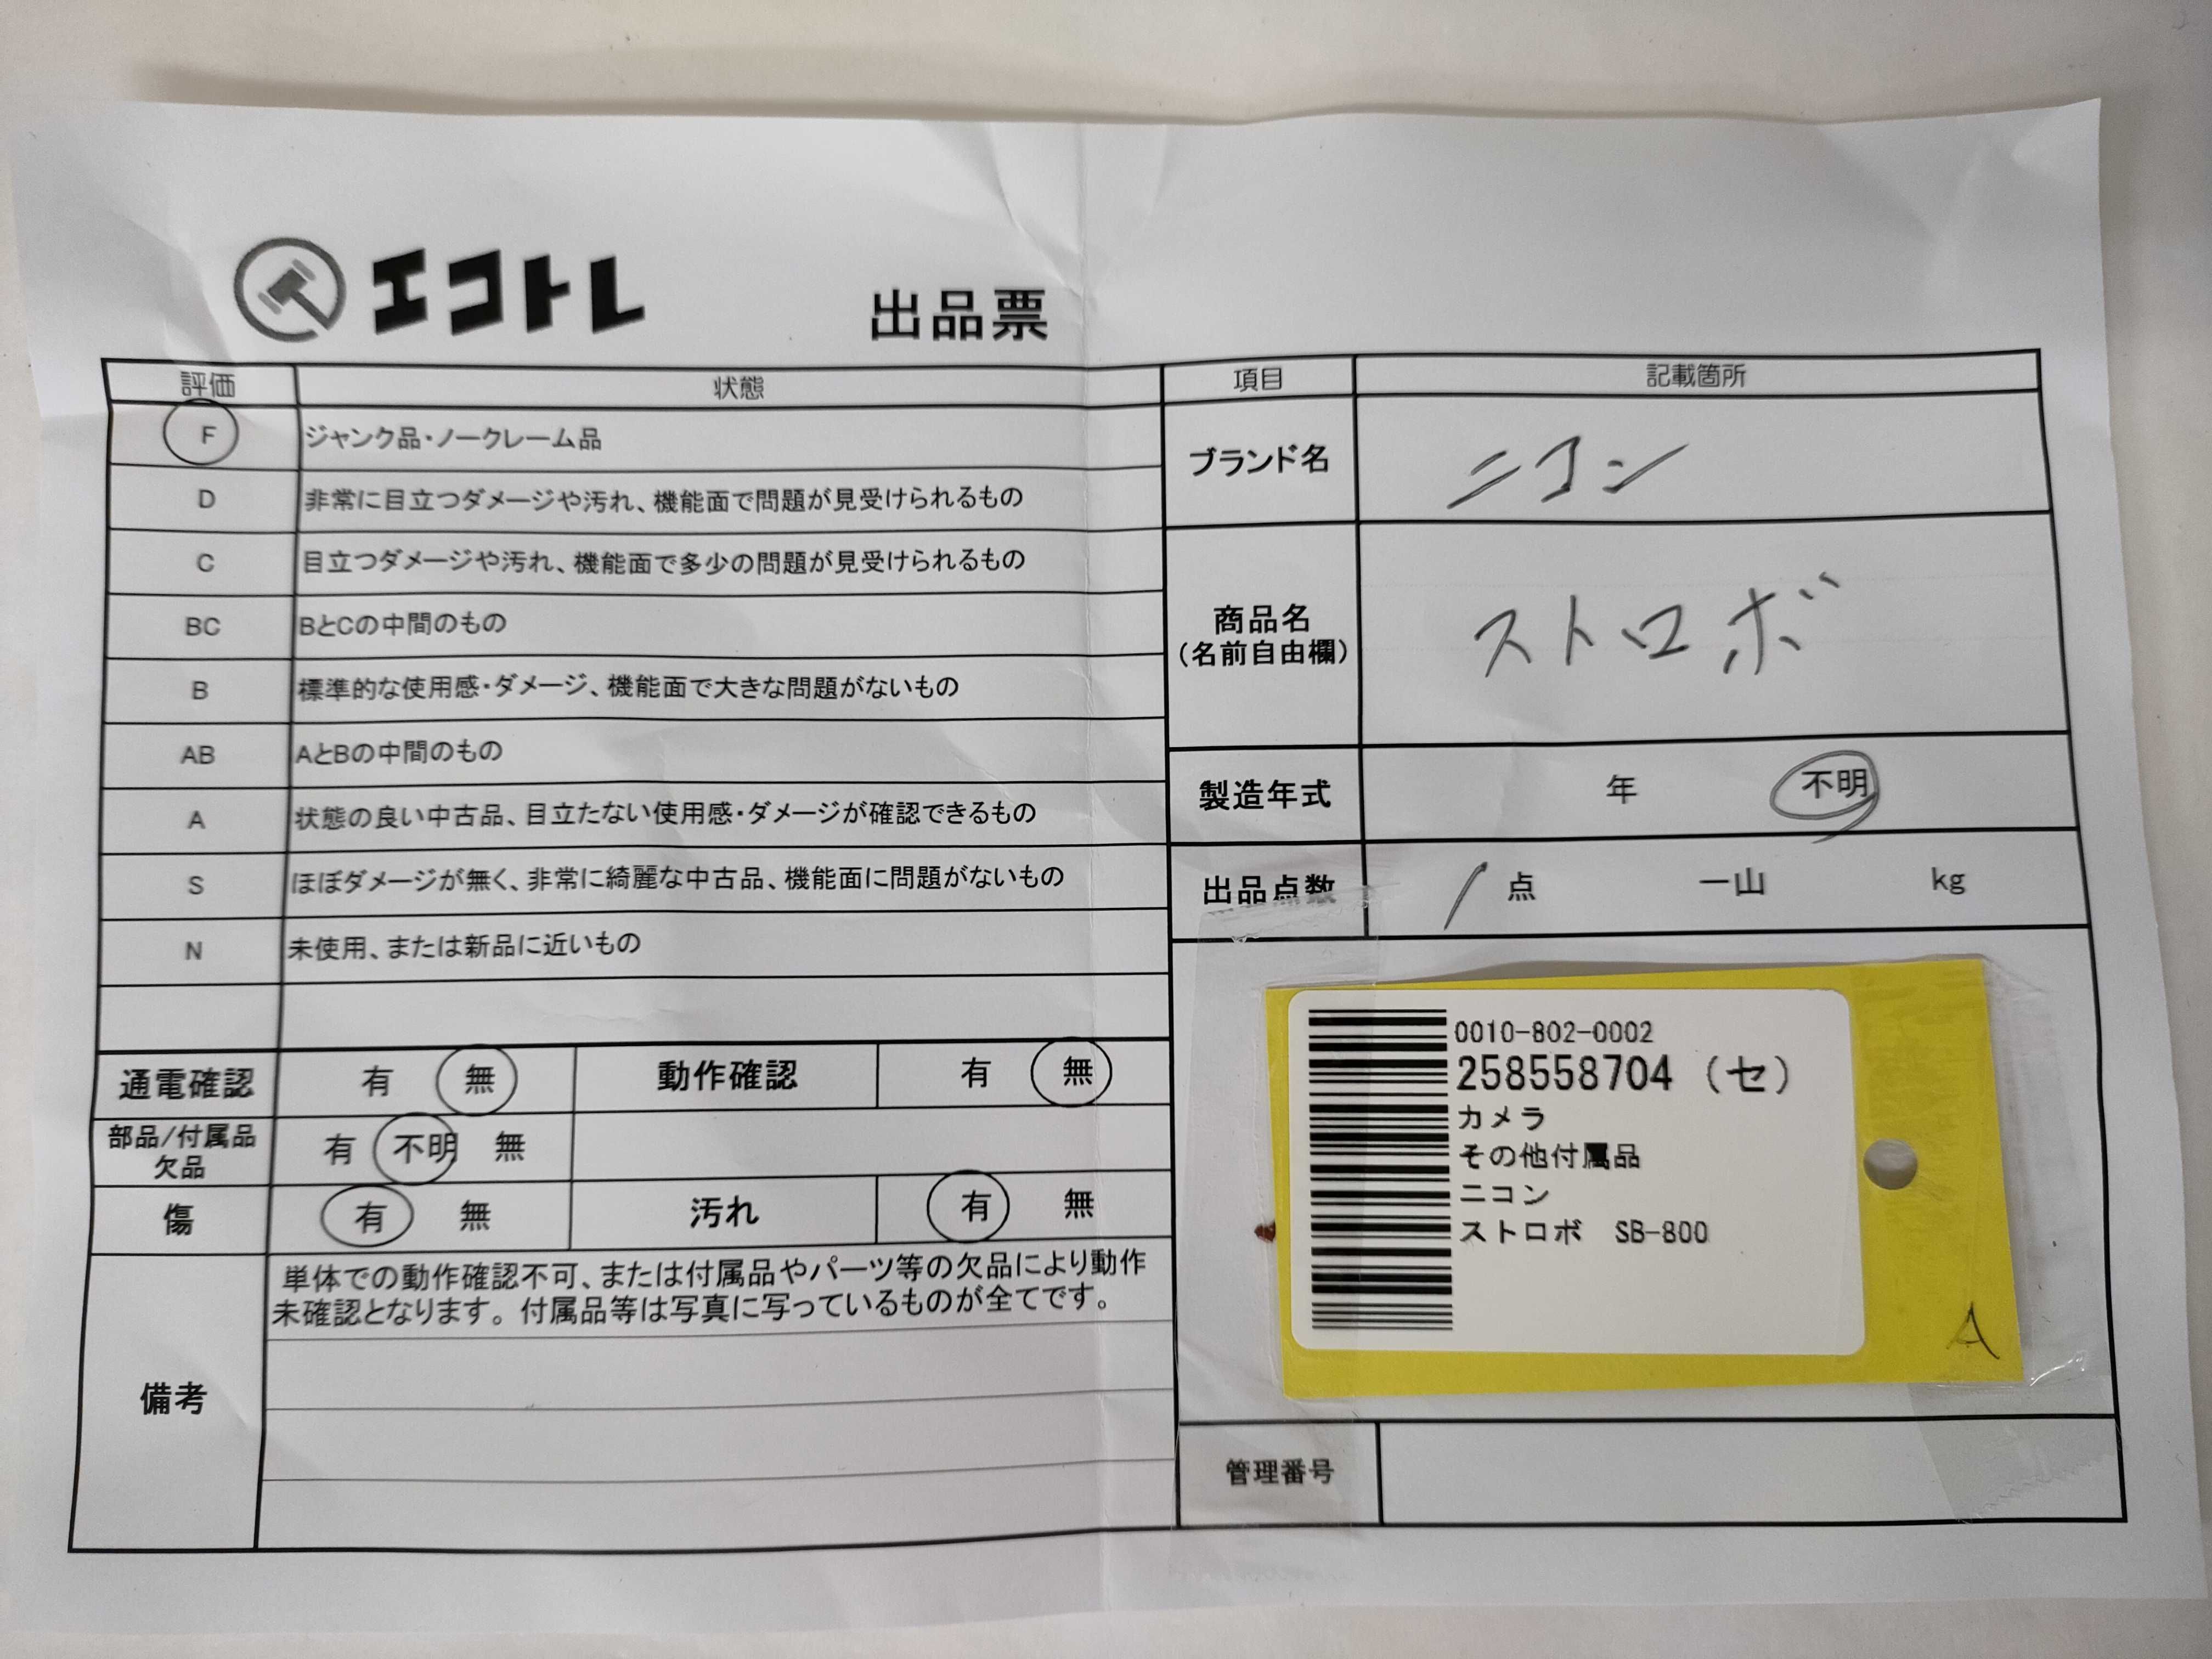 エコトレ
出品票
評価 状態
F ジャンク品・ノークレーム品
D 非常に目立つダメージや汚れ、機能面で問題が見受けられるもの
C 目立つダメージや汚れ、機能面で多少の問題が見受けられるもの
BC BとCの中間のもの
B 標準的な使用感・ダメージ、機能面で大きな問題がないもの
AB AとBの中間のもの
A 状態の良い中古品、目立たない使用感・ダメージが確認できるもの
S ほぼダメージが無く、非常に綺麗な中古品、機能面に問題がないもの
N 未使用、または新品に近いもの
通電確認 有 無 動作確認 有 無
部品/付属品
欠品
有 不明 無
傷 有 無 汚れ 有 無
備考
単体での動作確認不可、または付属品やパーツ等の欠品により動作
未確認となります。付属品等は写真に写っているものが全てです。
項目 記載箇所
ブランド名 ニコン
商品名
(名前自由欄)
ストロボ
製造年式 年 不明
出品点数 1 点 一山 kg
0010-802-0002
258558704 (セ)
カメラ
その他付属品
ニコン
ストロボ SB-800
A
管理番号